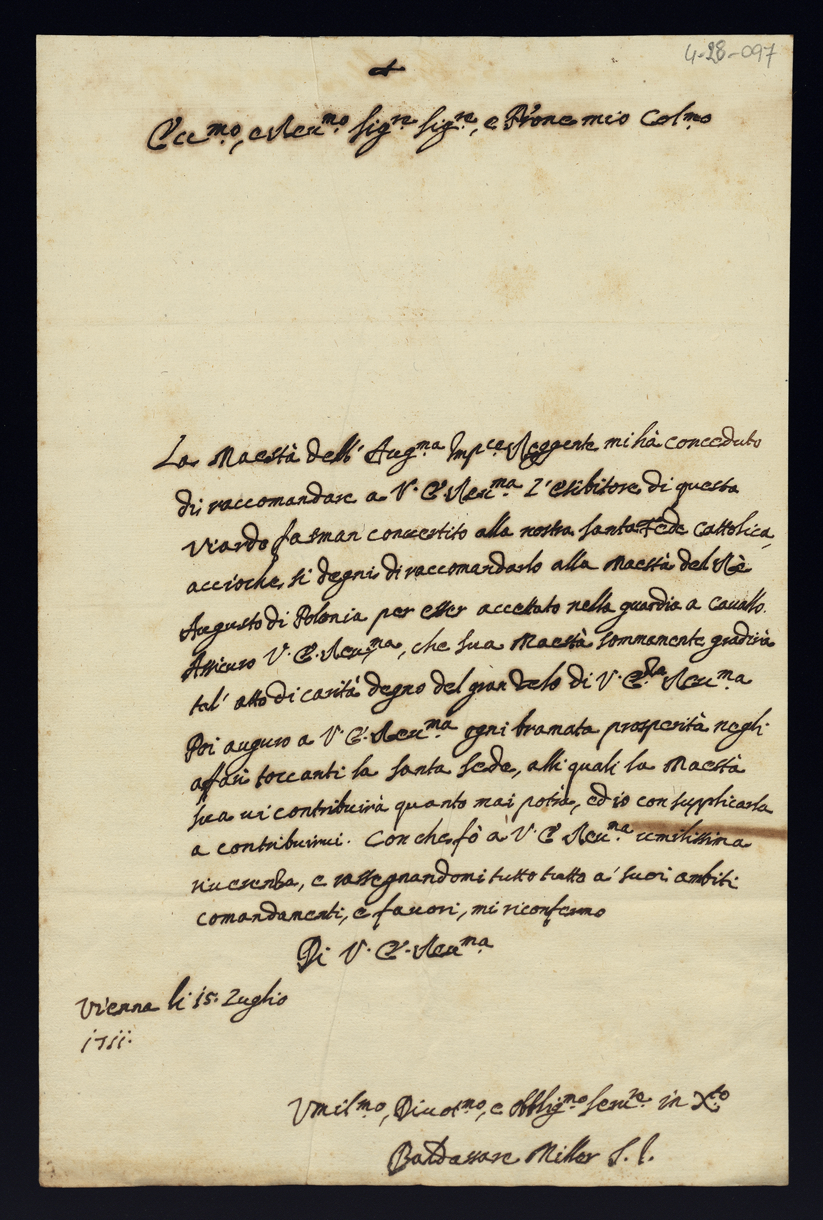 4-28-097
Ecc.mo, e Reu.mo Sig.re Sig.re, e Prone mio Col.mo
La Maestà dell' Aug.ma Imp.ce Reggente mi hà conceduto
di raccomandare a V. E. Reu.ma l'esibitore di questa
Viardo Jasman conuertito alla nostra santa Fede Cattolica,
accioche si degni di raccomandarlo alla Maestà del Rè
Augusto di Polonia per esser accettato nella guardia a cauallo.
Assicuro V. E. Reu.ma, che sua Maestà sommamente gradirà
tal' atto di carità degno del gran zelo di V. E.za Reu.ma
Poi auguro a V. E. Reu.ma ogni bramata prosperità negli
affari toccanti la Santa Sede, alli quali la Maestà
sua ui contribuirà quanto mai potrà, ed io con supplicarla
a contribuirui. Con che fò à V. E. Reu.ma umilissima
riuerenza, e rassegnandomi tutto tutto a' suoi ambiti
comandamenti, e fauori, mi riconfermo
Di V. E. Reu.ma
Vienna li 15. Luglio
1711.
Umil.mo, Diuot.mo, e obblig.mo seru.re in X.to
Baldassare Miller S. J.